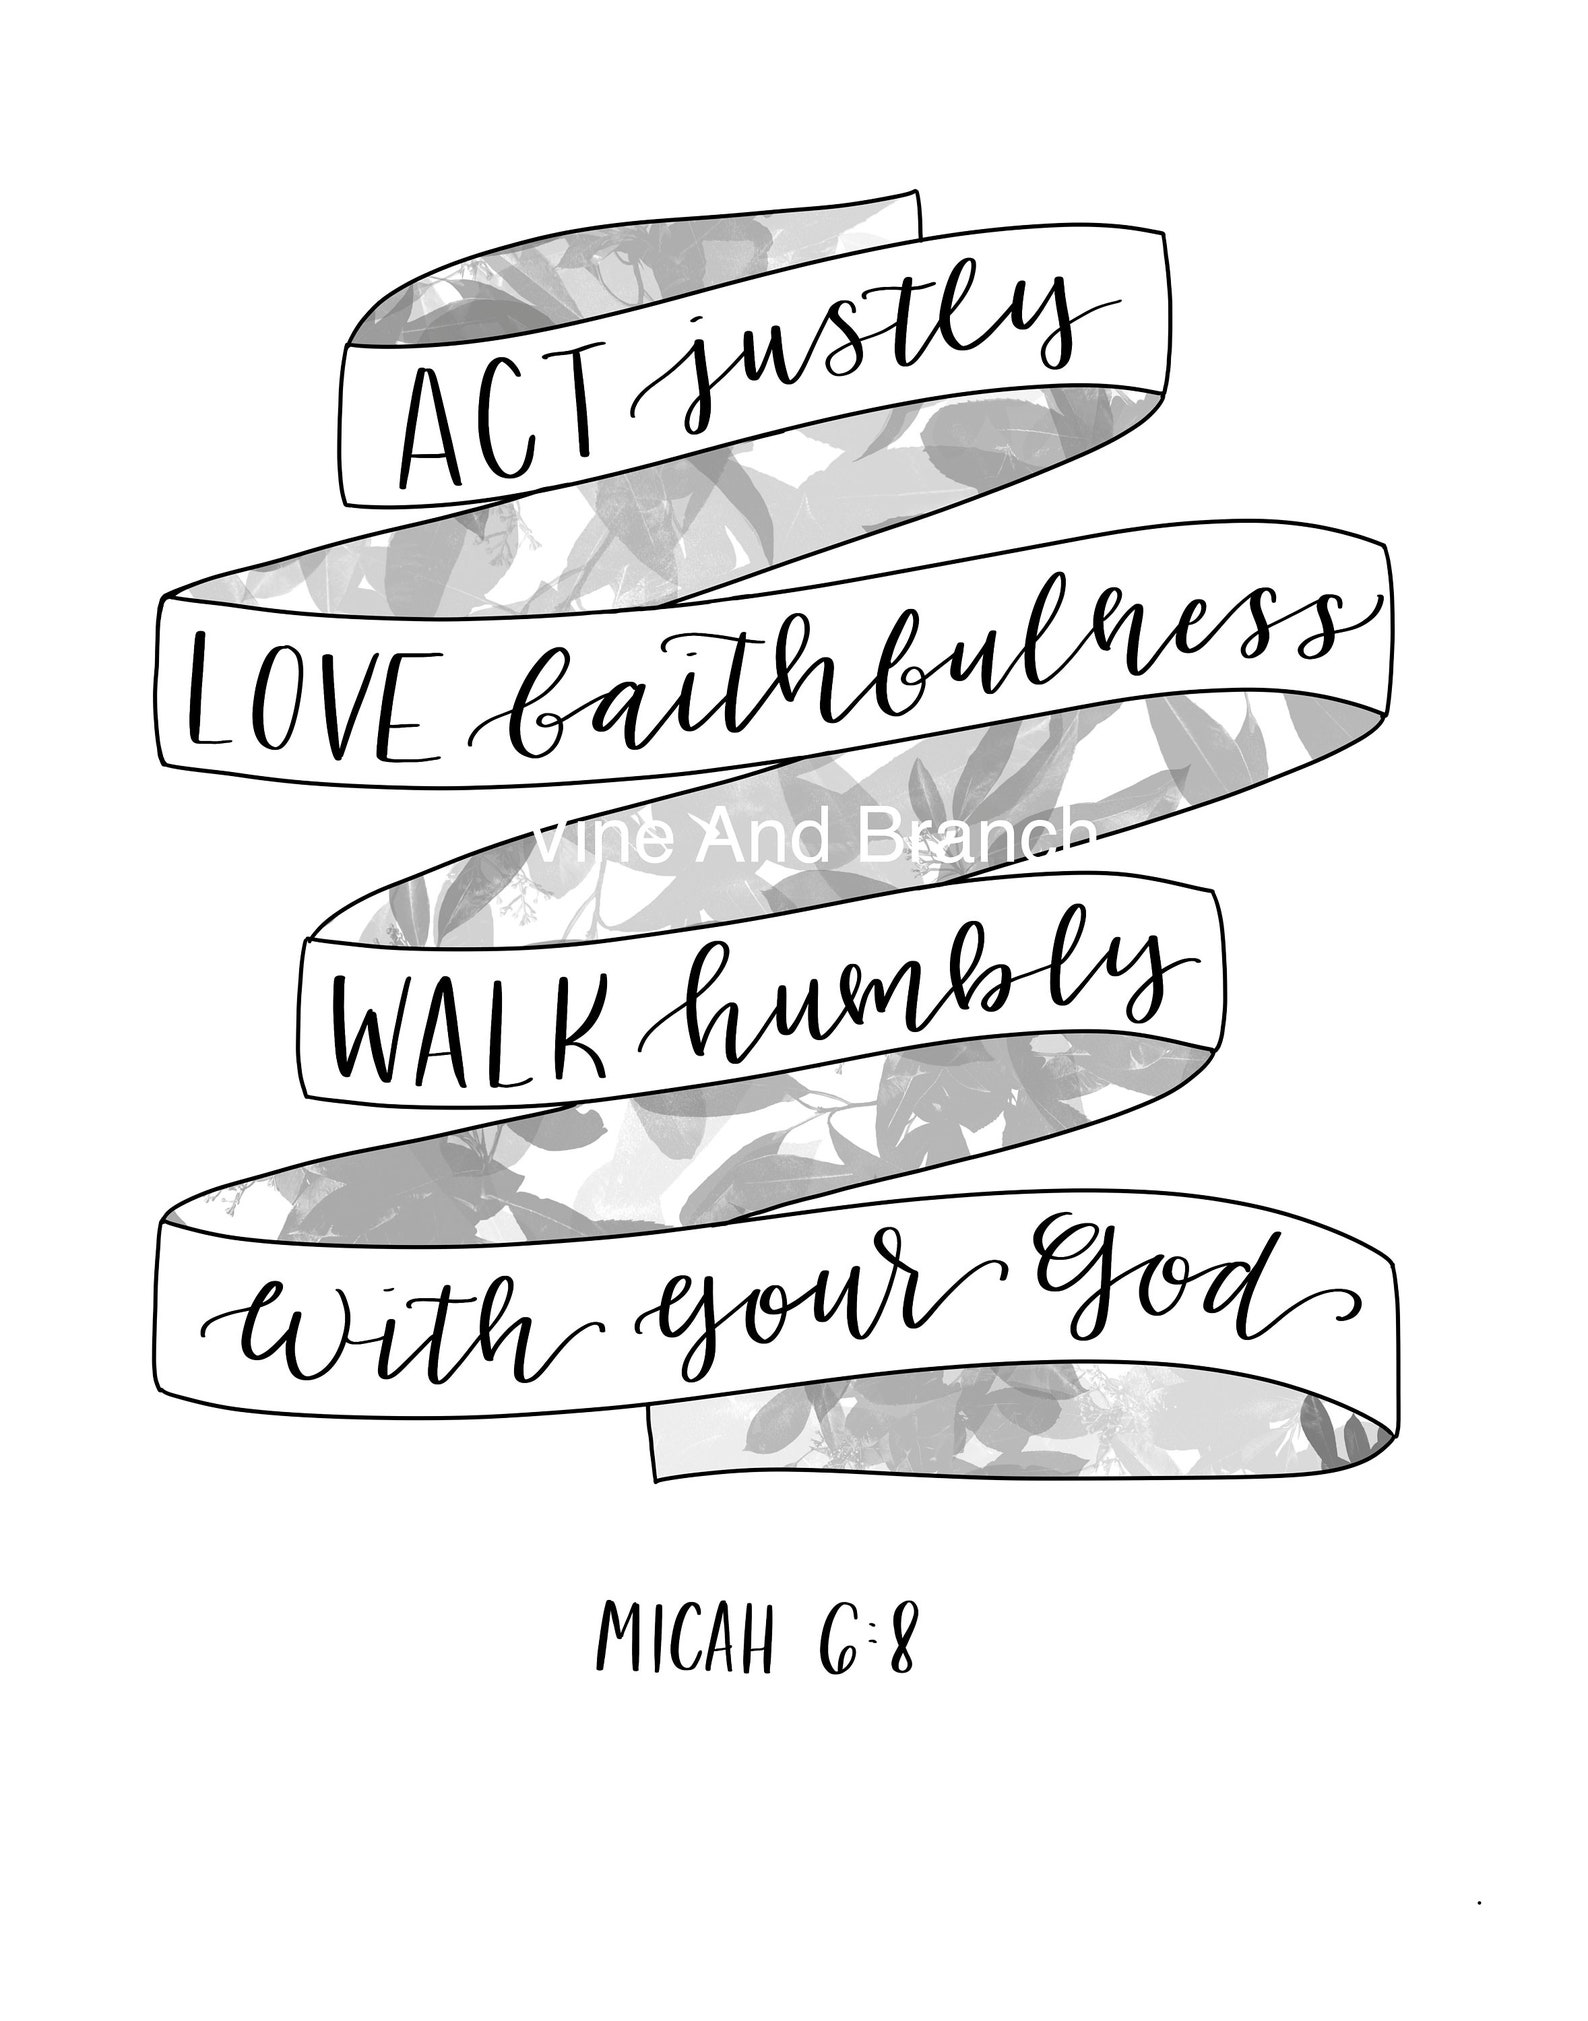 ACT justly
LOVE faithfulness
Vine And Branch
WALK humbly
With your God
MICAH 6:8